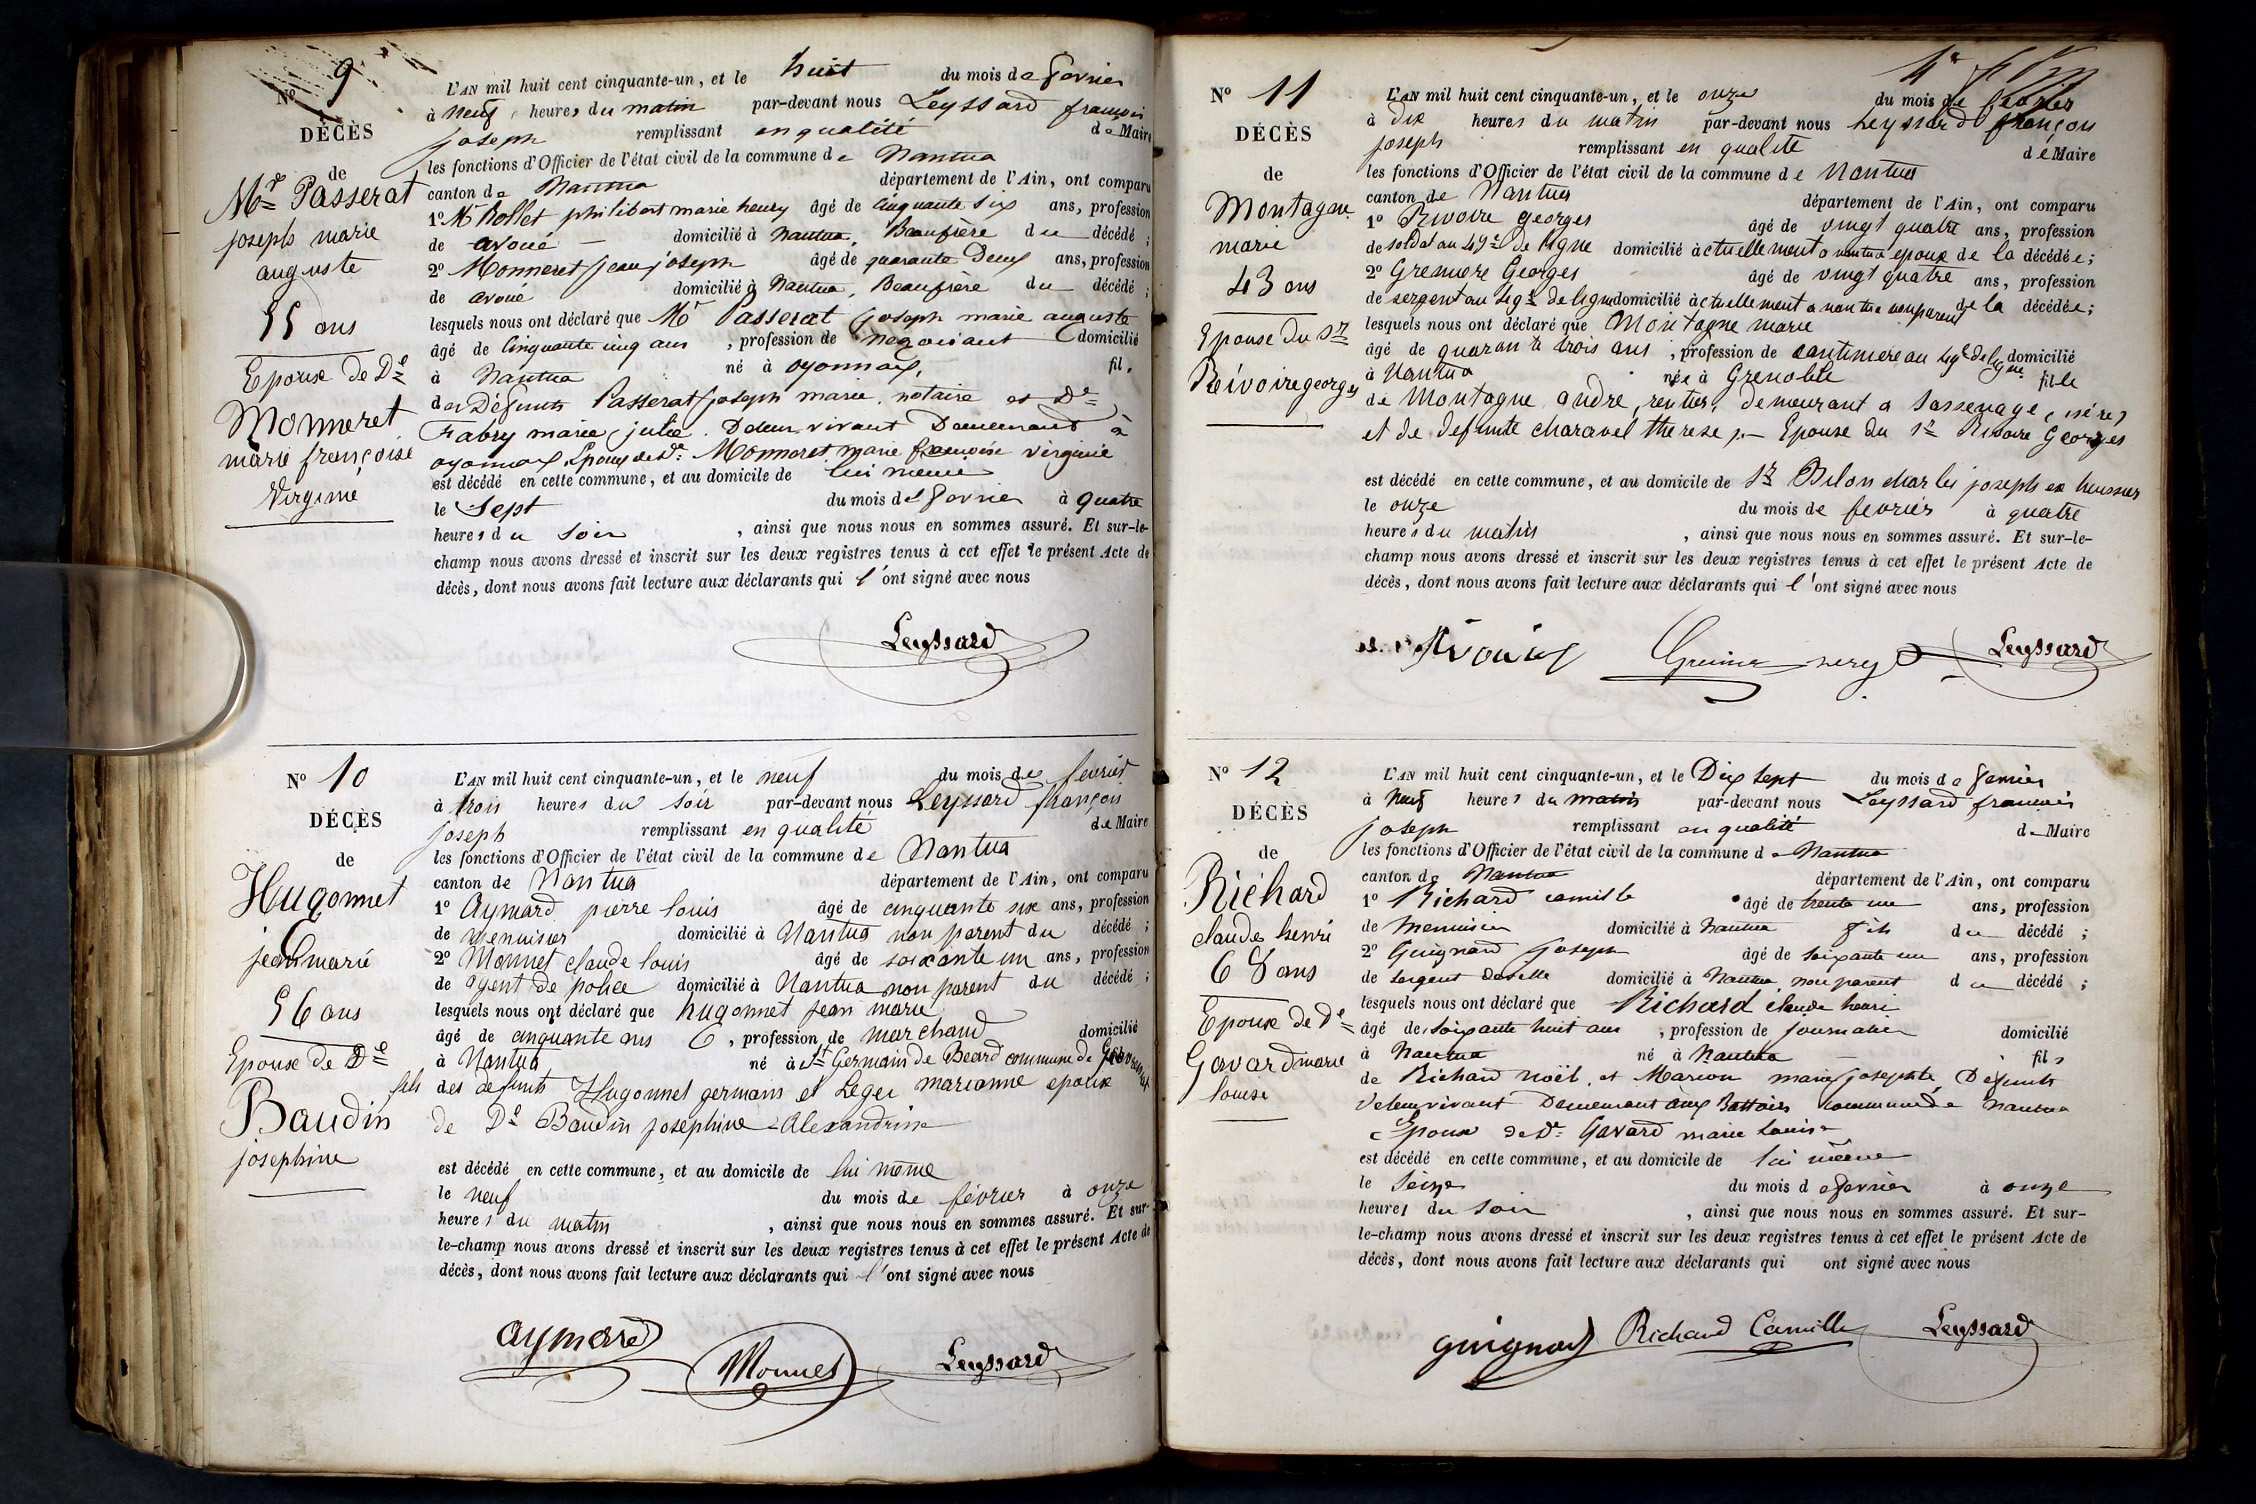 Nº 9
DÉCÈS
de
Mr Passerat
joseph marie
auguste
55 ans
Epoux de De
Monneret
marie françoise
Virginie
L'AN mil huit cent cinquante-un, et le huit du mois de fevrier
à neuf heures du matin par-devant nous Leyssard françois
joseph remplissant en qualité de Maire
les fonctions d'Officier de l'état civil de la commune de Nantua
canton de Nantua département de l'Ain, ont comparu
1º Mr Rollet philibert marie henry âgé de cinquante six ans, profession
de avoué domicilié à Nantua, Beaufrère du décédé ;
2º Monneret jean joseph âgé de quarante Deux ans, profession
de avoué domicilié à Nantua, Beaufrère du décédé ;
lesquels nous ont déclaré que Mr Passerat joseph marie auguste
âgé de cinquante cinq ans, profession de negociant domicilié
à Nantua né à oyonnax, fils
des Défunts Passerat joseph marie, notaire et De
Fabry marie julie. De leur vivant Demeurant à
oyonnax, Epoux de De Monneret marie françoise virginie
est décédé en cette commune, et au domicile de lui meme
le Sept du mois de fevrier à quatre
heures du soir, ainsi que nous nous en sommes assuré. Et sur-le-
champ nous avons dressé et inscrit sur les deux registres tenus à cet effet le présent Acte de
décès, dont nous avons fait lecture aux déclarants qui l'ont signé avec nous
Leyssard
Nº 10
DÉCÈS
de
Hugonnet
jean marie
56 ans
Epoux de De
Baudin
josephine
L'AN mil huit cent cinquante-un, et le neuf du mois de fevrier
à trois heures du soir par-devant nous Leyssard françois
joseph remplissant en qualité de Maire
les fonctions d'Officier de l'état civil de la commune de Nantua
canton de Nantua département de l'Ain, ont comparu
1º Aymard pierre louis âgé de cinquante six ans, profession
de menuisier domicilié à Nantua non parent du décédé ;
2º Monnet claude louis âgé de soixante un ans, profession
de agent de police domicilié à Nantua non parent du décédé ;
lesquels nous ont déclaré que hugonnet jean marie
âgé de cinquante six, profession de marchand domicilié
à Nantua né à St Germain de Beard commune de
fils des defunts Hugonnet germain et Leger marianne epoux
de De Baudin josephine Alexandrine
est décédé en cette commune, et au domicile de lui même
le neuf du mois de février à onze
heures du matin, ainsi que nous nous en sommes assuré. Et sur-
le-champ nous avons dressé et inscrit sur les deux registres tenus à cet effet le présent Acte de
décès, dont nous avons fait lecture aux déclarants qui l'ont signé avec nous
aymard Monnet Leyssard
Nº 11
DÉCÈS
de
Montagne
marie
43 ans
Epouse du Sr
Rivoire georges
L'AN mil huit cent cinquante-un, et le onze du mois de fevrier
à dix heures du matin par-devant nous Leyssard françois
joseph remplissant en qualité de Maire
les fonctions d'Officier de l'état civil de la commune de Nantua
canton de Nantua département de l'Ain, ont comparu
1º Rivoire georges âgé de vingt quatre ans, profession
de soldat au 49e de ligne domicilié actuellement a nantua epoux de la décédée ;
2º Greniere Georges âgé de vingt quatre ans, profession
de sergent au 49e de ligne domicilié actuellement a nantua non parent de la décédée ;
lesquels nous ont déclaré que Montagne marie
âgé de quarante trois ans, profession de cantiniere au 49e de ligne domicilié
à Nantua née à Grenoble fille
de Montagne andre, rentier, demeurant a Sassenage, isére,
et de defunte charavel therese, Epouse du Sr Rivoire Georges
est décédé en cette commune, et au domicile de Sr Bilon charles joseph ex huissier
le onze du mois de fevrier à quatre
heures du matin, ainsi que nous nous en sommes assuré. Et sur-le-
champ nous avons dressé et inscrit sur les deux registres tenus à cet effet le présent Acte de
décès, dont nous avons fait lecture aux déclarants qui l'ont signé avec nous
Leyssard
Nº 12
DÉCÈS
de
Richard
claude henri
68 ans
Epoux de De
Gavard marie
louise
L'AN mil huit cent cinquante-un, et le Dix sept du mois de fevrier
à neuf heures du matin par-devant nous Leyssard françois
joseph remplissant en qualité de Maire
les fonctions d'Officier de l'état civil de la commune de Nantua
canton de Nantua département de l'Ain, ont comparu
1º Richard camille âgé de trente un ans, profession
de menuisier domicilié à Nantua fils du décédé ;
2º Guignard joseph âgé de soixante un ans, profession
de sergent de ville domicilié à Nantua, non parent du décédé ;
lesquels nous ont déclaré que Richard claude henri
âgé de soixante huit ans, profession de journalier domicilié
à Nantua né à Nantua fils
de Richard noël, et Marion marie josephte, Défunts
De leur vivant Demeurant aux Battoirs commune de Nantua
Epoux de De Gavard marie Louise
est décédé en cette commune, et au domicile de lui même
le Seize du mois de fevrier à onze
heures du soir, ainsi que nous nous en sommes assuré. Et sur-
le-champ nous avons dressé et inscrit sur les deux registres tenus à cet effet le présent Acte de
décès, dont nous avons fait lecture aux déclarants qui ont signé avec nous
guignard Richard Camille Leyssard